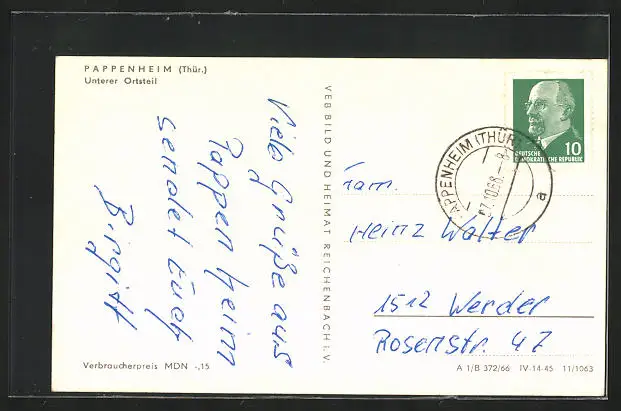 PAPPENHEIM (Thür.)
Unterer Ortsteil
Viele Grüße aus
Pappenheim
sendet Euch
Birgitt
Verbraucherpreis MDN -,15
VEB BILD UND HEIMAT REICHENBACH i. V.
DEUTSCHE
DEMOKRATISCHE REPUBLIK
10
PAPPENHEIM (THÜR
a
Fam.
Heinz Walter
1512 Werder
Rosenstr. 47
A 1/B 372/66 IV-14-45 11/1063